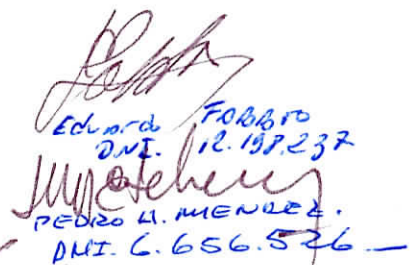 Eduardo FABBRO
DNI. 12.198.237
PEDRO H. MENDEZ.
DNI. 6.656.526